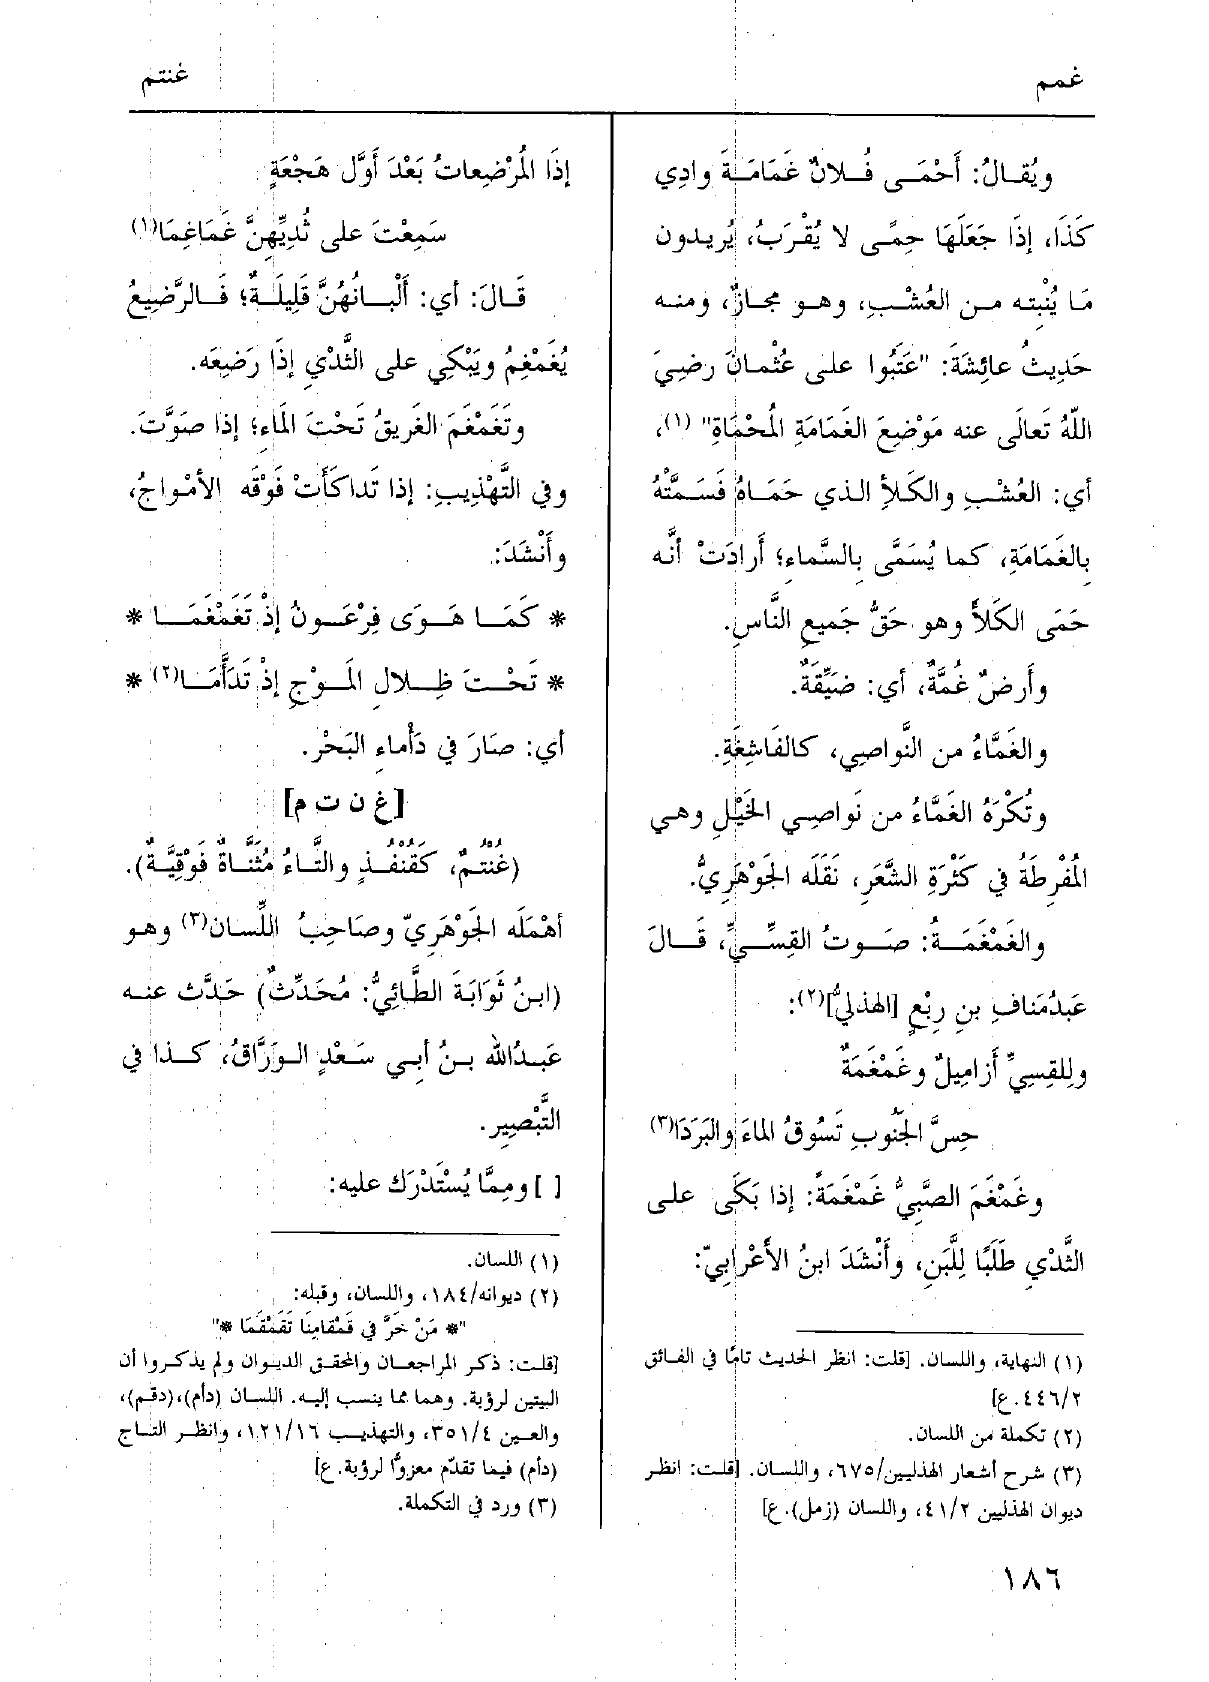 غمم
غنتم
ويُقالُ: أَحْمَى فُلانٌ غَمَامَةَ وادِي
كَذَا، إذَا جَعَلَهَا حِمًى لا يُقْرَبُ، يُريدون
مَا يُنْبِته من العُشْبِ، وهو مجازٌ، ومنه
حَدِيثُ عائِشَةَ: "عَتَبُوا على عُثْمانَ رضِيَ
اللهُ تَعالَى عنه مَوْضِعَ الغَمَامَةِ المُحْمَاةِ" (١)،
أي: العُشْبِ والكَلأِ الذي حَمَاهُ فَسَمَّتْهُ
بِالغَمَامَةِ، كما يُسَمَّى بِالسَّماءِ؛ أَرادَتْ أنَّه
حَمَى الكَلأَ وهو حَقُّ جَمِيعِ النَّاسِ.
وأَرضٌ غُمَّةٌ، أي: ضَيِّقَةٌ.
والغَمَّاءُ من النَّواصِي، كالفَاشِغَةِ.
وتُكْرَهُ الغَمَّاءُ من نَواصِي الخَيْلِ وهي
المُفْرِطَةُ في كَثْرَةِ الشَّعَرِ، نَقَلَه الجَوْهَرِيُّ.
والغَمْغَمَةُ: صَوتُ القِسِّيِّ، قَالَ
عَبدُمَنافِ بنِ رِبْعٍ [الهذليُّ](٢):
ولِلقِسِيِّ أَزامِيلٌ وغَمْغَمَةٌ
حِسَّ الجَنُوبِ تَسُوقُ الماءَ والبَرَدَا(٣)
وغَمْغَمَ الصَّبِيُّ غَمْغَمَةً: إذا بَكَى على
الثَّدْيِ طَلَبًا لِلَّبَنِ، وأَنْشَدَ ابنُ الأَعْرابِيّ:
(١) النهاية، واللسان. [قلت: انظر الحديث تامًا في الفائق
٤٤٦/٢.ع]
(٢) تكملة من اللسان.
(٣) شرح أشعار الهذليين/٦٧٥، واللسان. [قلت: انظر
ديوان الهذليين ٤١/٢، واللسان (زمل).ع]
إذَا المُرْضِعاتُ بَعْدَ أَوَّلِ هَجْعَةٍ
سَمِعْتَ على ثُدِيِّهِنَّ غَمَاغِمَا(١)
قَالَ: أي: أَلْبانُهُنَّ قَلِيلَةٌ؛ فَالرَّضِيعُ
يُغَمْغِمُ ويَبْكِي على الثَّدْيِ إذَا رَضِيعَه.
وتَغَمْغَمَ الغَرِيقُ تَحْتَ المَاءِ؛ إذا صَوَّتَ.
وفي التَّهْذِيبِ: إذا تَداكَأَتْ فَوْقَه الأَمْواجُ،
وأَنْشَدَ:
* كَمَا هَوَى فِرْعَونُ إذْ تَغَمْغَمَا *
* تَحْتَ ظِلالِ المَوْجِ إذْ تَدَأَّمَا(٢) *
أي: صَارَ في دَأْماءِ البَحْر.
[غ ن ت م]
(غُنْتُمٌ، كَقُنْفُذٍ والتَّاءُ مُثَناةٌ فَوْقِيَّةٌ).
أَهْمَلَه الجَوْهَرِيّ وصَاحِبُ اللِّسان(٣) وهو
(ابنُ ثَوَابَةَ الطَّائِيُّ: مُحَدِّثٌ) حَدَّث عنه
عَبدُالله بنُ أبي سَعْدٍ الوَرَّاقُ، كذا في
التَّبْصِير.
[ ] ومِمَّا يُسْتَدْرَك عليه:
(١) اللسان.
(٢) ديوانه/١٨٤، واللسان، وقبله:
"* مَنْ خَرَّ في قَمْقامِنَا تَقَمْقَمَا *"
[قلت: ذكر المراجعان والمحقق الديوان ولم يذكروا أن
البيتين لرؤبة. وهما مما ينسب إليه. اللسان (دأم)،(دقم)،
والعين ٣٥١/٤، والتهذيب ١٢١/١٦، وانظر التاج
(دأم) فيما تقدّم معزوًا لرؤبة.ع]
(٣) ورد في التكملة.
١٨٦